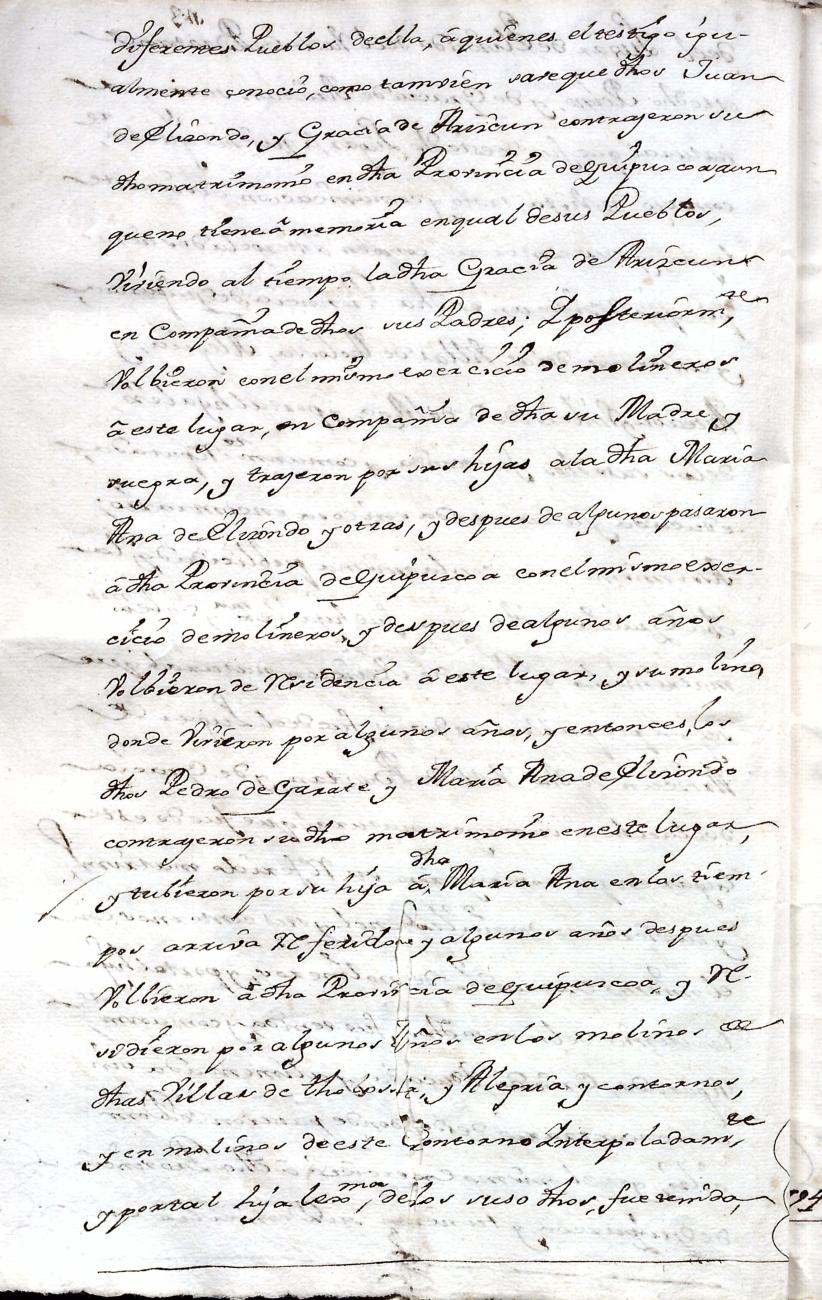 diferentes Pueblos de ella, â quienes el testigo igu-
almente conocio, como tamvien save que dhos Juan
de Elizondo, y Gracia de Arizcun contrajeron su
dho matrimonio en dha Provincia de Guipuzcoa, aun
que no tiene â memoria en qual de sus Pueblos,
Viviendo al tiempo la dha Gracia de Arizcun
en Compañia de dhos sus Padres; Y posteriormte,
Volbieron con el mismo exercicio de molineros
â este lugar, en Compañia de dha su Madre, y
suegra, y trajeron por sus hijas a la dha Maria
Ana de Elizondo y otras, y despues de algunos pasaron
â dha Provincia de Guipuscoa con el mismo exer-
cicio de molineros, y despues de algunos años
Volbieron de Residencia â este lugar, y su molino,
donde Vivieron por algunos años, y entonces, los
dhos Pedro de Garate y Maria Ana de Elizondo
contrajeron su dho matrimonio en este lugar,
y tubieron por su hija â dha Maria Ana en los tiem-
pos arriva Referidos y algunos años despues
Volbieron â dha Provincia de Guipuscoa, y Re-
sidieron por algunos años en los molinos de
dhas Villas de Tholosa, y Alegria y contornos,
y en molinos de este Contorno Interpoladamte,
y por tal hija lexma, de los suso dhos, fue tenida,